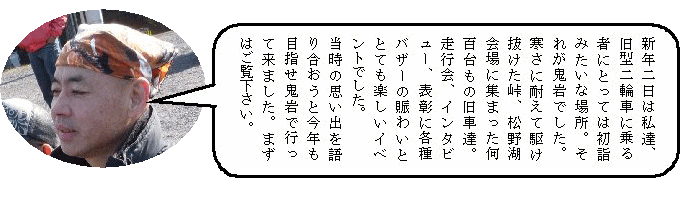 新年二日は私達、
旧型二輪車に乗る
者にとっては初詣
みたいな場所。そ
れが鬼岩でした。
寒さに耐えて駆け
抜けた峠、松野湖
会場に集まった何
百台もの旧車達。
走行会、インタビ
ュー、表彰に各種
バザーの賑わいと
とても楽しいイベ
ントでした。
当時の思い出を語
り合おうと今年も
目指せ鬼岩で行っ
て来ました。まず
はご覧下さい。